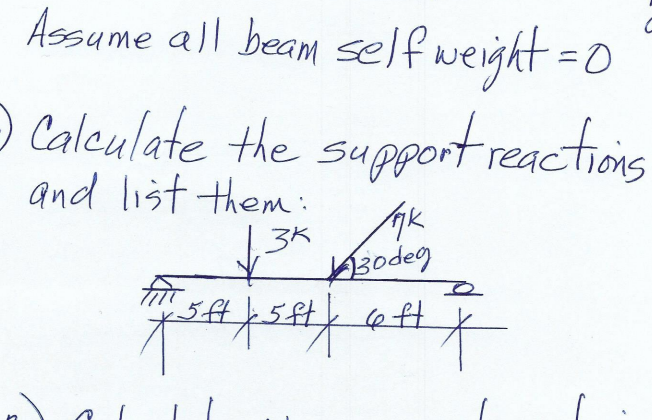 Assume all beam self weight = 0
) Calculate the support reactions
and list them:
3K
30deg
5 ft 5 ft 6 ft